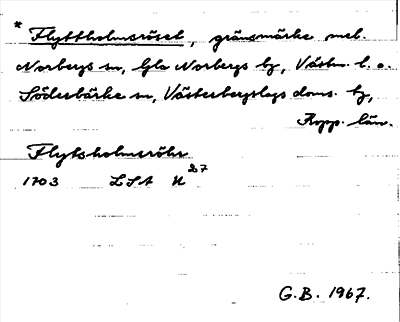 * Flyttholmsröset, gränsmärke mel.
Norbergs sn, Gla Norbergs by, Västm. l. o.
Söderbärke sn, Västerbergslags doms. by,
Kopp. län.
Flytsholmsröhr
1703 LSA U 27
G.B. 1967.